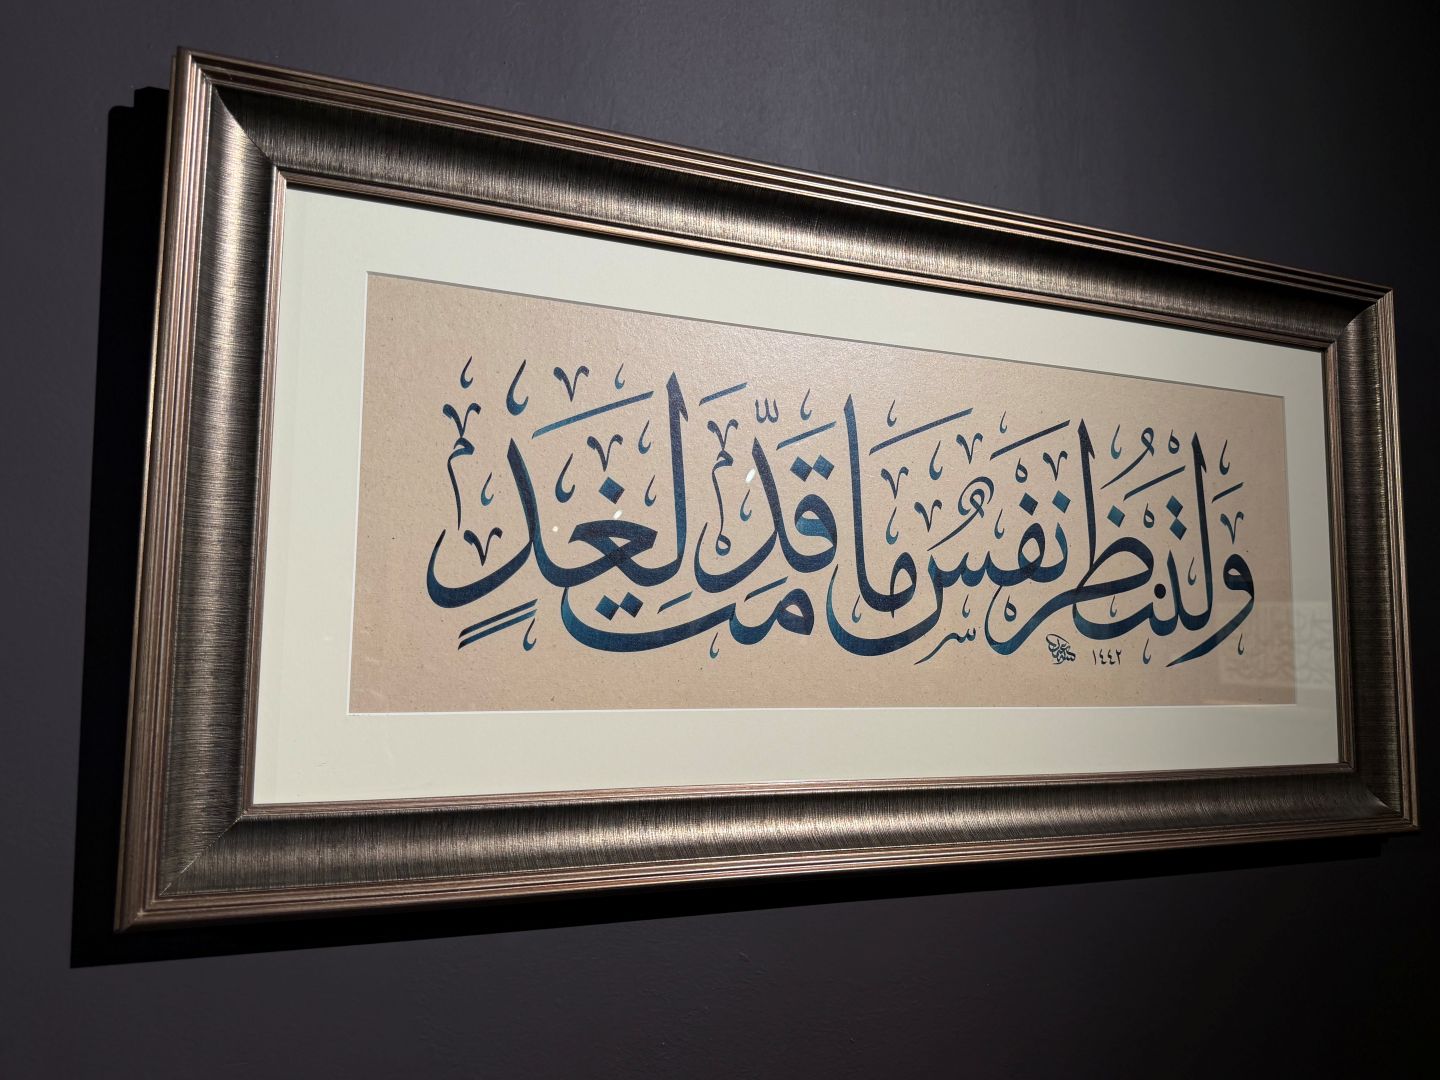 وَلْتَنْظُرْ نَفْسٌ مَا قَدَّمَتْ لِغَدٍ
١٤٤٢